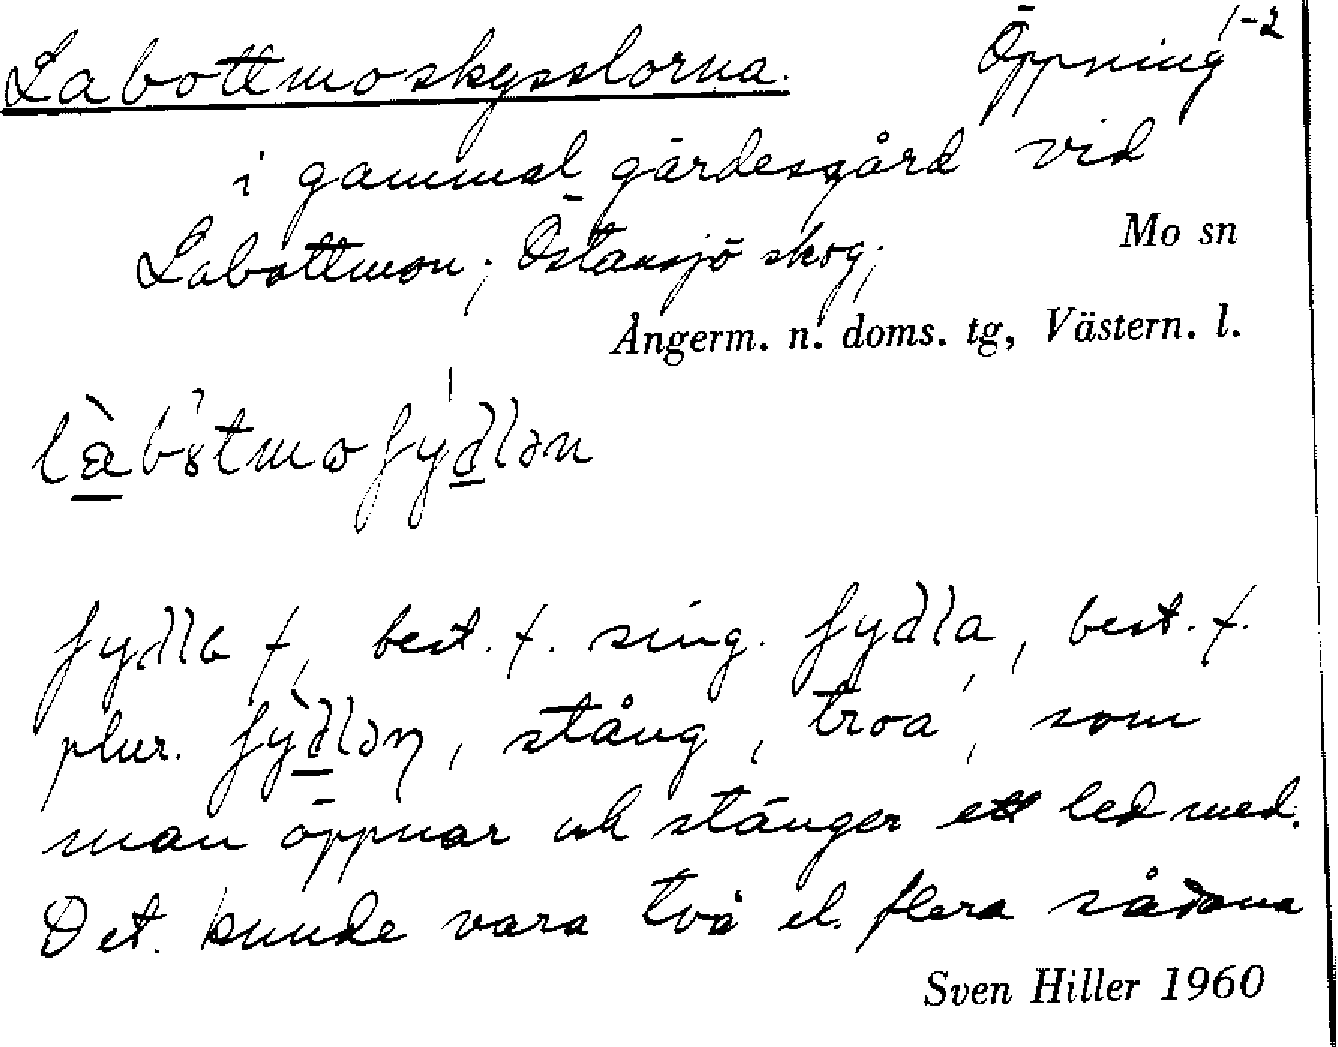 1-2
Labottmoskysslorna. Öppning
i gammal gärdesgård vid
Labottmon; Östansjö skog;
Mo sn
Ångerm. n. doms. tg, Västern. l.
f, best. f. sing. best. f.
plur. stång, troa, som
man öppnar och stänger ett led med.
Det kunde vara två el. flera sådana
Sven Hiller 1960